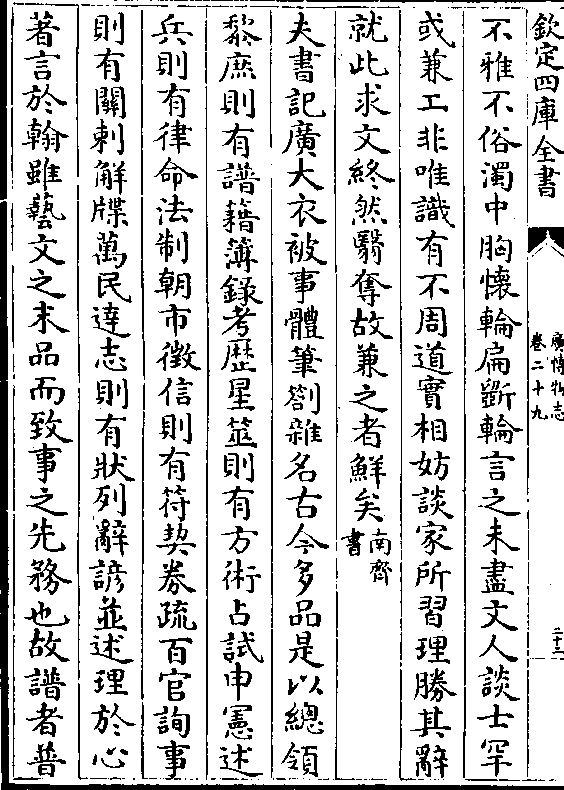 欽定四庫全書
廣博物志
卷二十九
二十三
不雅不俗濁中胸懷輪扁斲輪言之未盡文人談士罕
或兼工非唯識有不周道實相妨談家所習理勝其辭
就此求文終然翳奪故兼之者鮮矣南齊書
夫書記廣大衣被事體筆劄雜名古今多品是以總領
黎庶則有譜籍簿錄考歴星筮則有方術占試申憲述
兵則有律命法制朝市徵信則有符契券疏百官詢事
則有關刺解牒萬民達志則有狀列辭諺並述理於心
著言於翰雖藝文之末品而致事之先務也故譜者普